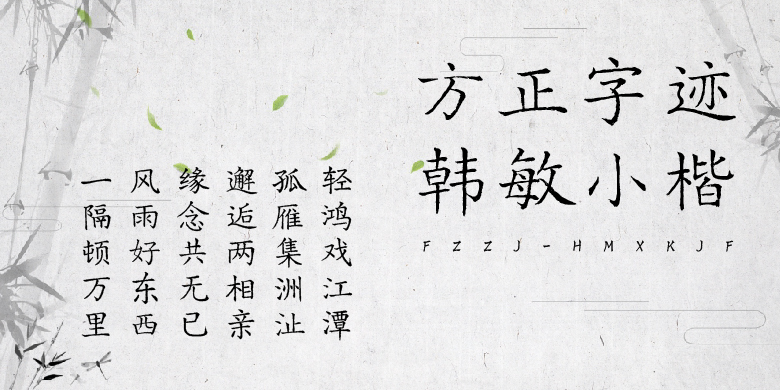 方正字迹
韩敏小楷
FZZJ-HMXKJF
轻鸿戏江潭
孤雁集洲沚
邂逅两相亲
缘念共无已
风雨好东西
一隔顿万里